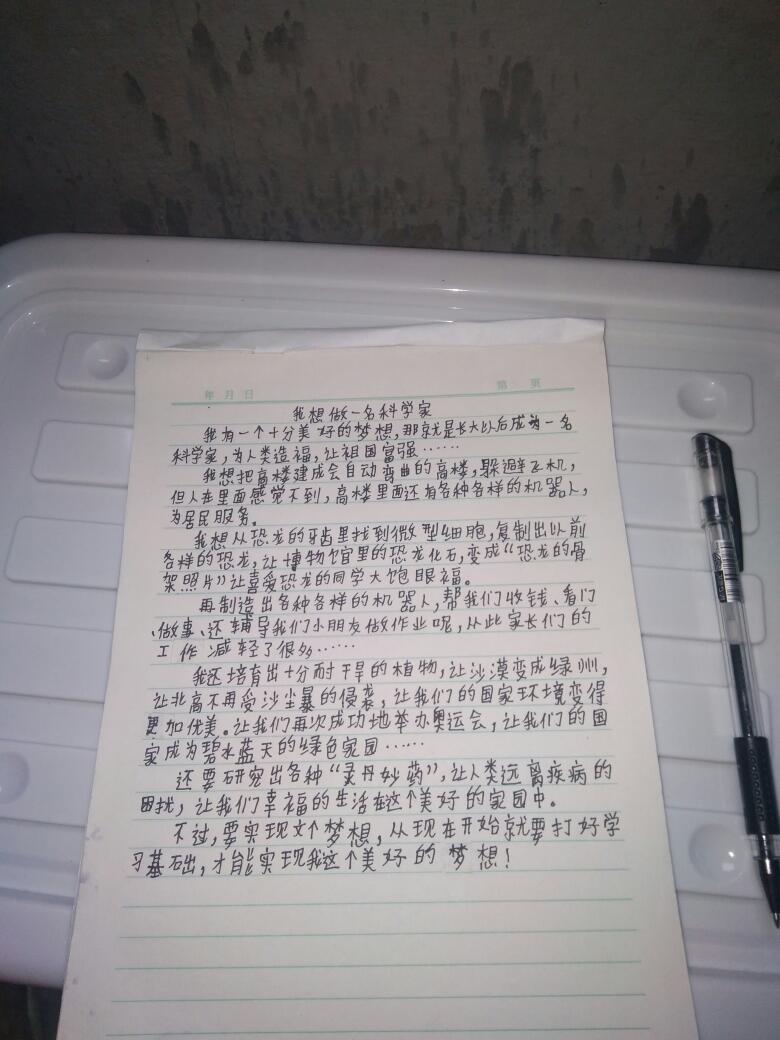 年 月 日
第 页
我想做一名科学家
我有一个十分美好的梦想,那就是长大以后成为一名
科学家,为人类造福,让祖国富强……
我想把高楼建成会自动弯曲的高楼,躲避飞机,
但人在里面感觉不到,高楼里面还有各种各样的机器人,
为居民服务。
我想从恐龙的牙齿里找到微型细胞,复制出以前
各样的恐龙,让博物馆里的恐龙化石,变成“恐龙的骨
架照片”让喜爱恐龙的同学大饱眼福。
再制造出各种各样的机器人,帮我们收钱、看门
、做事、还辅导我们小朋友做作业呢,从此家长们的
工作减轻了很多……
我还培育出十分耐干旱的植物,让沙漠变成绿州,
让北高不再受沙尘暴的侵袭,让我们的国家环境变得
更加优美。让我们再次成功地举办奥运会,让我们的国
家成为碧水蓝天的绿色家园……
还要研究出各种“灵丹妙药”,让人类远离疾病的
困扰,让我们幸福的生活在这个美好的家园中。
不过,要实现文个梦想,从现在开始就要打好学
习基础,才能实现我这个美好的梦想!